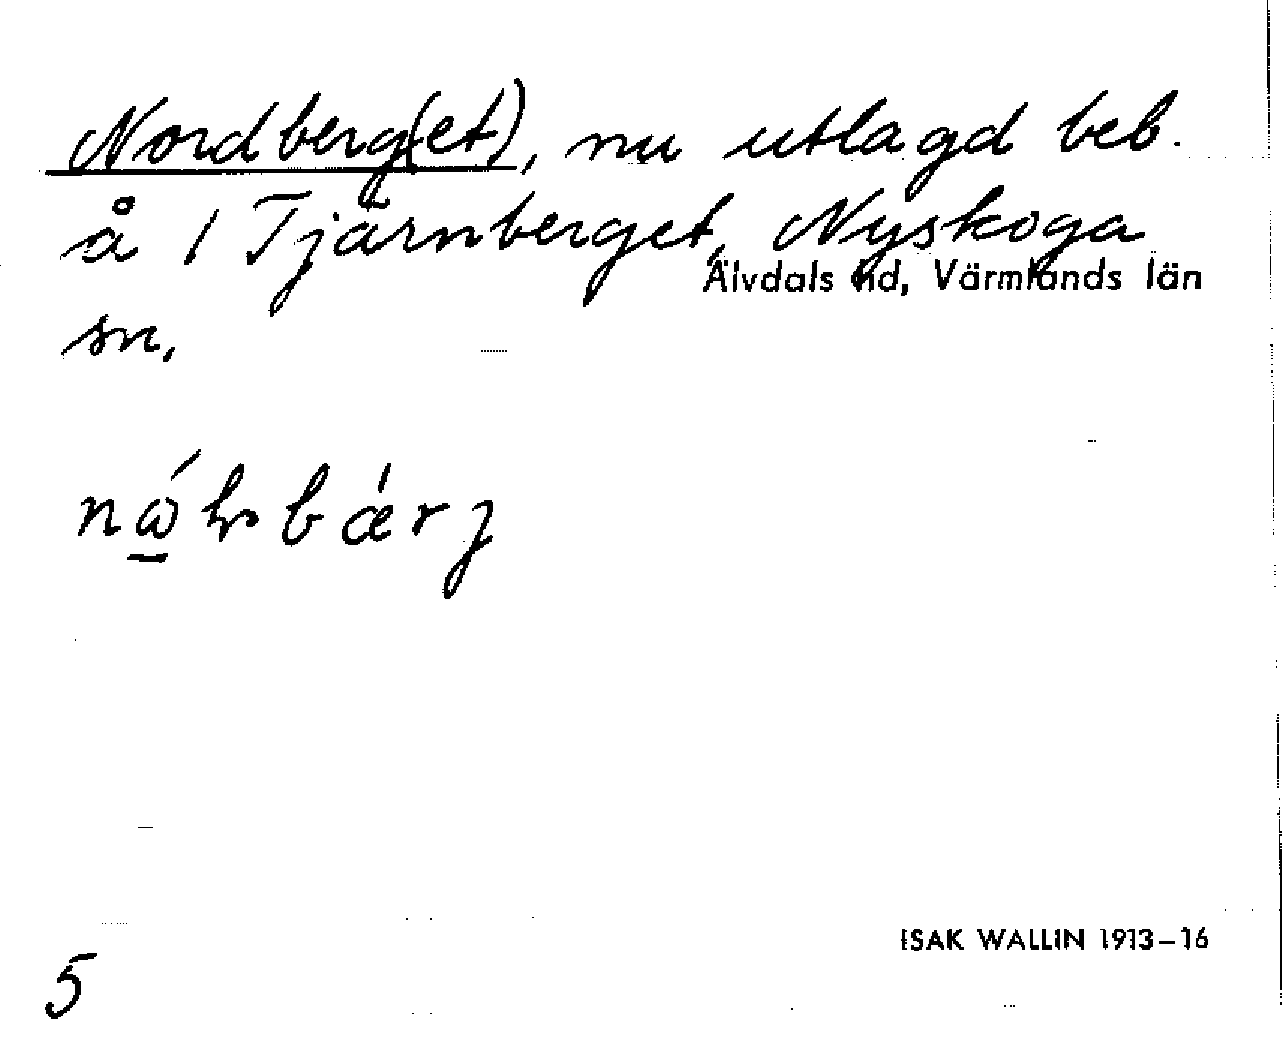 Nordberg(et), nu utlagd beb.
å 1 Tjärnberget, Nyskoga
Älvdals hd, Värmlands län
sn,
bǽrj
ISAK WALLIN 1913–16
5